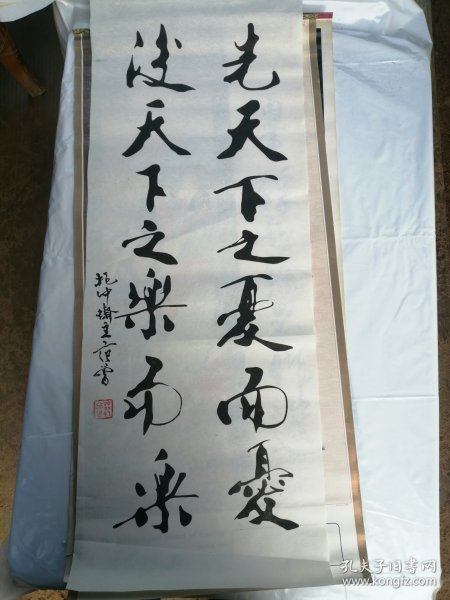 先天下之憂而憂
後天下之樂而樂
抱冲斋主范曾
孔夫子旧书网
www.kongfz.com